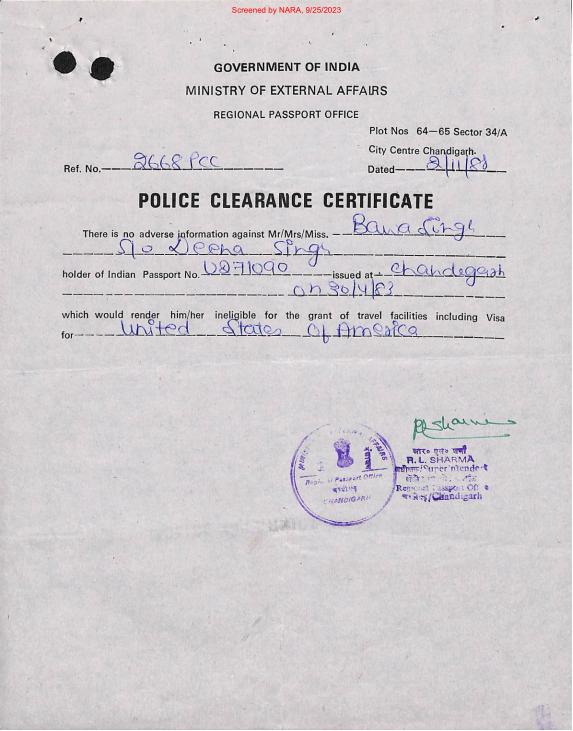 Screened by NARA, 9/25/2023
GOVERNMENT OF INDIA
MINISTRY OF EXTERNAL AFFAIRS
REGIONAL PASSPORT OFFICE
Plot Nos 64—65 Sector 34/A
City Centre Chandigarh.
Ref. No. 2668 PCC
Dated 2/11/83
POLICE CLEARANCE CERTIFICATE
There is no adverse information against Mr/Mrs/Miss. Bawa Singh
S/o Deena Singh
holder of Indian Passport No. U271090 issued at Chandegarh
on 30/4/83
which would render him/her ineligible for the grant of travel facilities including Visa
for United States Of America
RLSharma
आर० एल० शर्मा
R. L. SHARMA
AFFAIRS
Regional Passport Office
CHANDIGARH
/Chandigarh